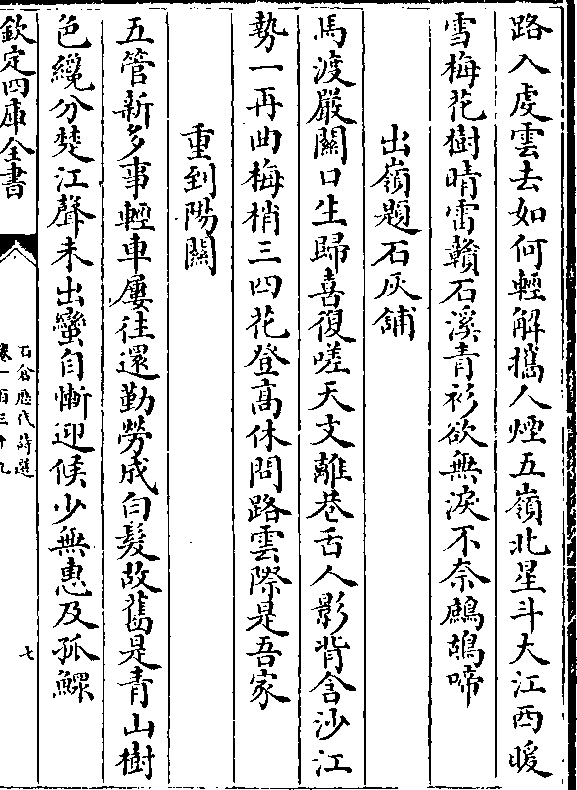 路入虔雲去如何輕解攜人煙五嶺北星斗大江西暖
雪梅花樹晴雷贛石溪青衫欲無淚不奈鷓鴣啼
出嶺題石灰舖
馬渡嚴關口生歸喜復嗟天文離卷舌人影背含沙江
勢一再曲梅梢三四花登高休問路雲際是吾家
重到陽關
五管新多事輕車屢往還勤勞成白髮故舊是青山樹
色纔分楚江聲未出蠻自慚迎候少無惠及孤鰥
欽定四庫全書
石倉歷代詩選
卷一百三十九
七